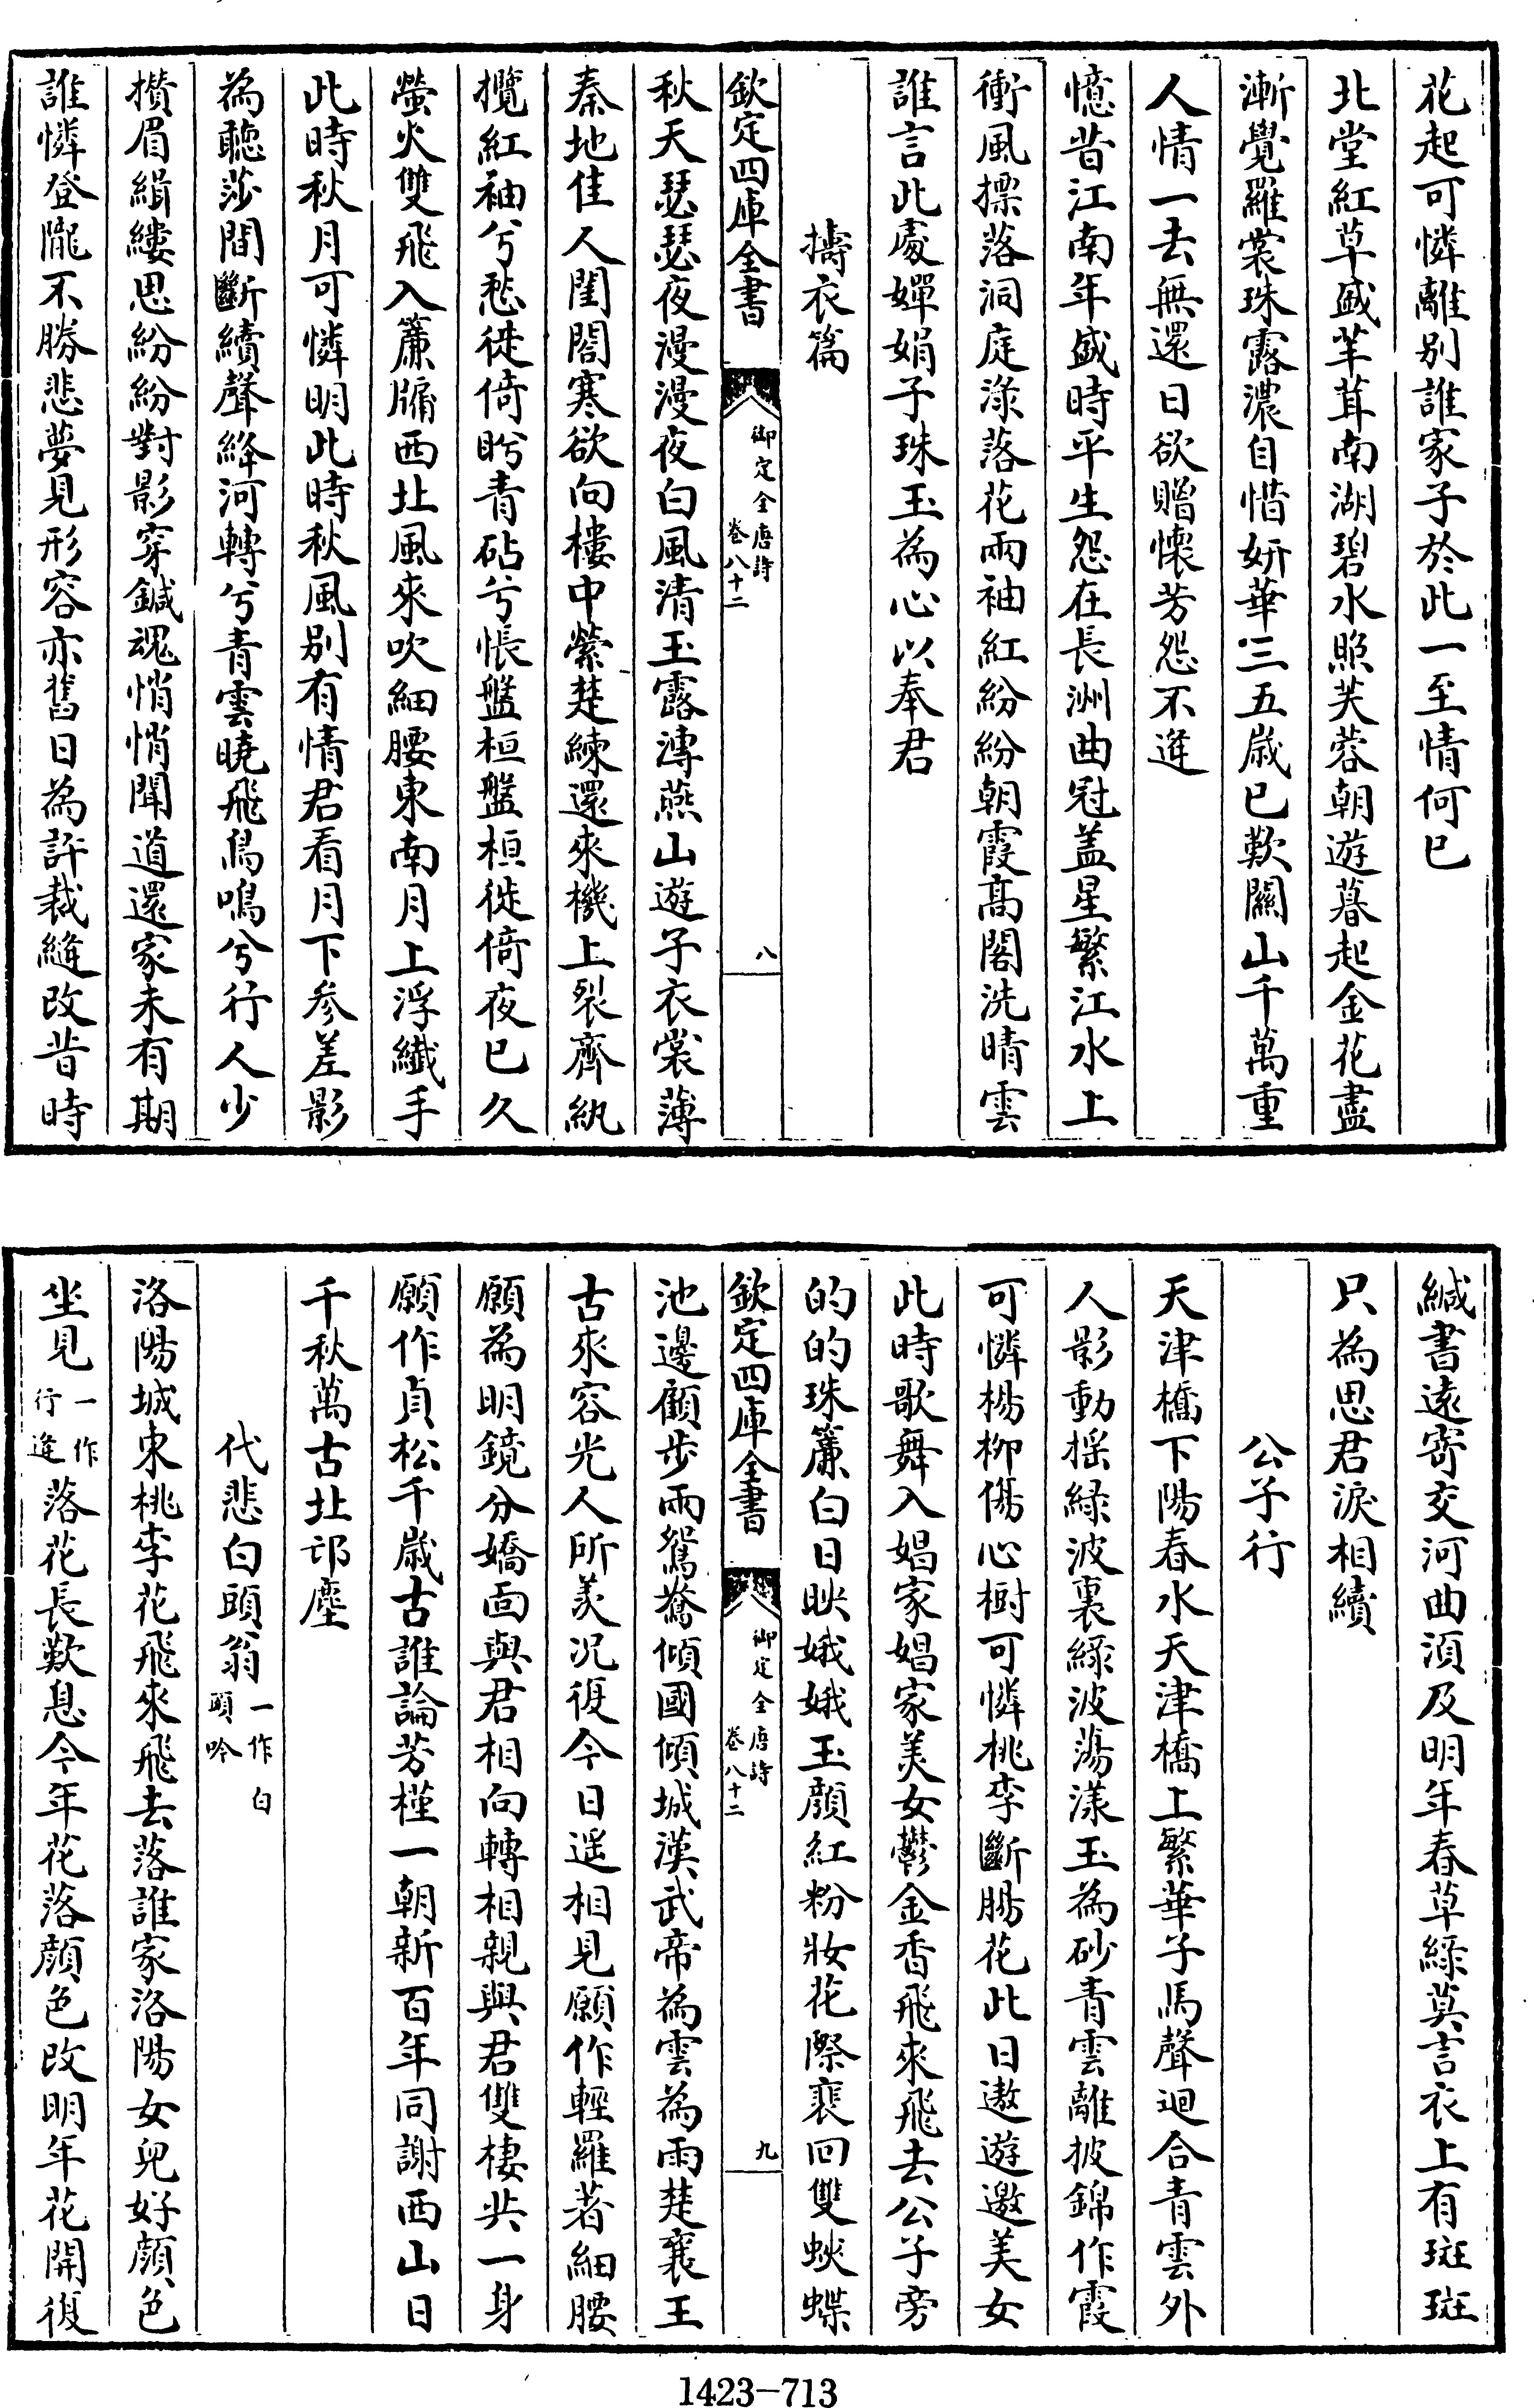 花起可憐離別誰家子於此一至情何已
北堂紅草盛芊茸南湖碧水照芙蓉朝遊暮起金花盡
漸覺羅裳珠露濃自惜妍華三五歲已歎關山千萬重
人情一去無還日欲贈懷芳怨不逢
憶昔江南年盛時平生怨在長洲曲冠盖星繁江水上
衝風摽落洞庭淥落花兩袖紅紛紛朝霞高閣洗晴雲
誰言此處嬋娟子珠玉為心以奉君
擣衣篇
欽定四庫全書
御定全唐詩
卷八十二
八
秋天瑟瑟夜漫漫夜白風清玉露漙燕山遊子衣裳薄
秦地佳人閨閤寒欲向樓中縈楚練還來機上裂齊紈
攬紅袖兮愁徙倚盻青砧兮悵盤桓盤桓徙倚夜已久
螢火雙飛入簾牖西北風來吹細腰東南月上浮纖手
此時秋月可憐明此時秋風別有情君看月下參差影
為聽莎間斷續聲絳河轉兮青雲曉飛鳥鳴兮行人少
攢眉緝縷思紛紛對影穿鍼魂悄悄聞道還家未有期
誰憐登隴不勝悲夢見形容亦舊日為許裁縫改昔時
緘書遠寄交河曲湏及明年春草綠莫言衣上有斑斑
只為思君淚相續
公子行
天津橋下陽春水天津橋上繁華子馬聲迴合青雲外
人影動搖綠波裏綠波蕩漾玉為砂青雲離披錦作霞
可憐楊柳傷心樹可憐桃李斷腸花此日遨遊邀美女
此時歌舞入娼家娼家美女鬱金香飛來飛去公子旁
的的珠簾白日映娥娥玉顏紅粉妝花際裴回雙蛺蝶
欽定四庫全書
御定全唐詩
卷八十二
九
池邊顧步兩鴛鴦傾國傾城漢武帝為雲為雨楚襄王
古來容光人所羨况復今日遥相見願作輕羅著細腰
願為明鏡分嬌面與君相向轉相親與君雙棲共一身
願作貞松千歲古誰論芳槿一朝新百年同謝西山日
千秋萬古北邙塵
代悲白頭翁一作白頭吟
洛陽城東桃李花飛來飛去落誰家洛陽女兒好顏色
坐見一作行逢落花長歎息今年花落顏色改明年花開復
1423-713